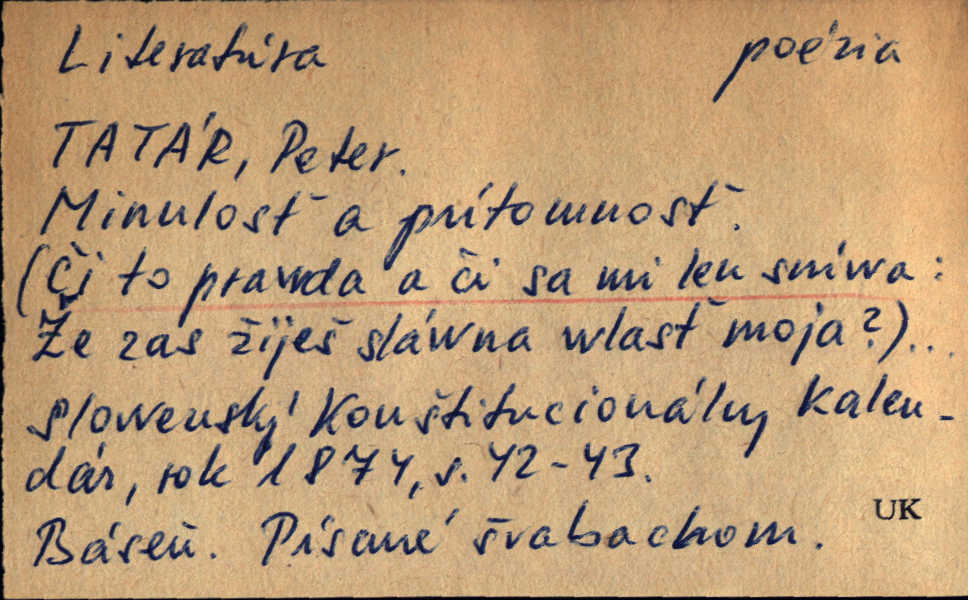 Literatúra poézia
TATÁR, Peter.
Minulosť a prítomnosť.
(Či to prawda a či sa mi len sníwa:
Že zas žiješ sláwna wlasť moja?)...
Slowenský Konštitucionálny Kalen-
dár, rok 1874, s. 42-43.
Báseň. Písané švabachom.
UK